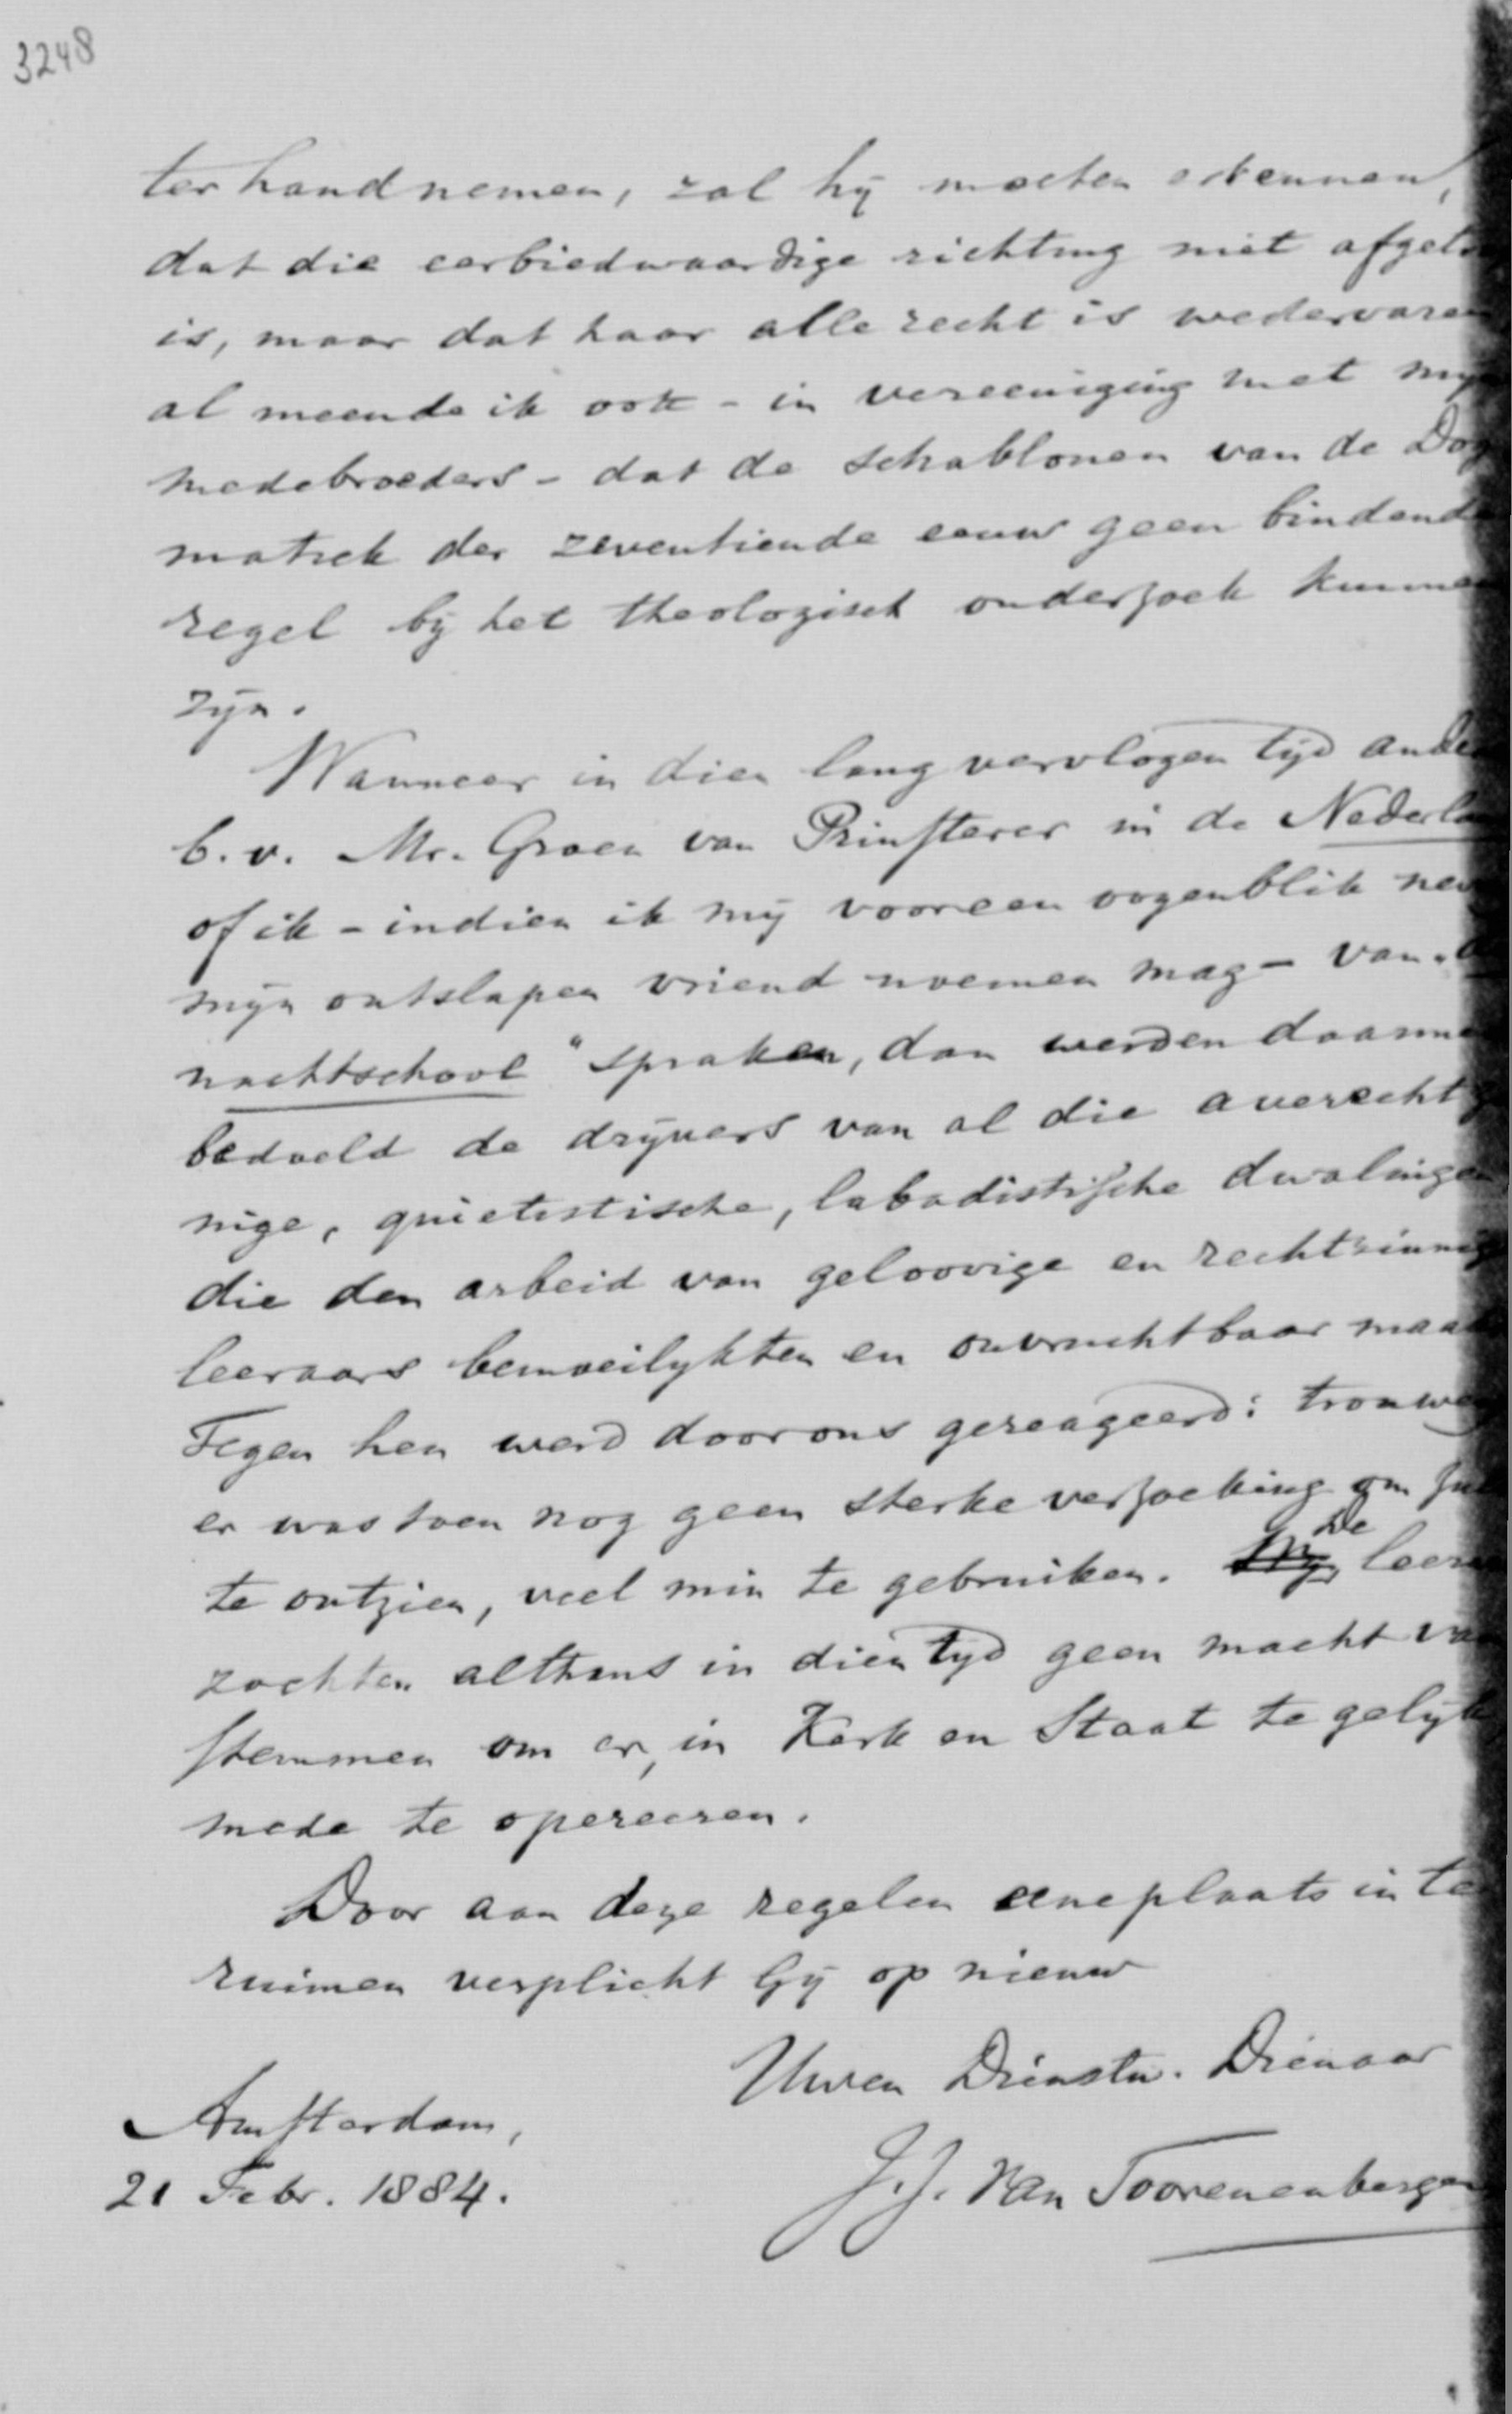 3248
ter hand nemen, zal hij moeten erkennen,
dat die eerbiedwaardige richting niet
is, maar dat haar alle recht is wedervaren
al meende ik ook - in vereeniging met
medebroeders - dat de schablonen van de Dog
matiek der zeventiende eeuw geen bindende
regel bij het theologisch onderzoek kunnen
zijn.
Wanneer in dien lang vervlogen tijd
b.v. Mr. Groen van Prinsterer in de Nederla
of ik - indien ik mij voor een oogenblik
mijn ontslapen vriend noemen mag - van
nachtschool" spraken, dan werden daarme
bedoeld de drijvers van al die averecht
nige, quietistische, labadistische dwalingen
die den arbeid van geloovige en rechtzinnig
leeraars bemoeilijkten en onvruchtbaar maak
Tegen hen werd door ons gereageerd: trouwe
er was toen nog geen sterke verzoeking om
te ontzien, veel min te gebruiken. De leera
zochten althans in dien tijd geen macht va
stemmen om er, in Kerk en Staat te gelijk
mede te opereeren.
Door aan deze regelen eene plaats in te
ruimen verplicht Gij op nieuw
Uwen Dienstw. Dienaar
J.J. van Toorenenbergen
Amsterdam,
21 Febr. 1884.